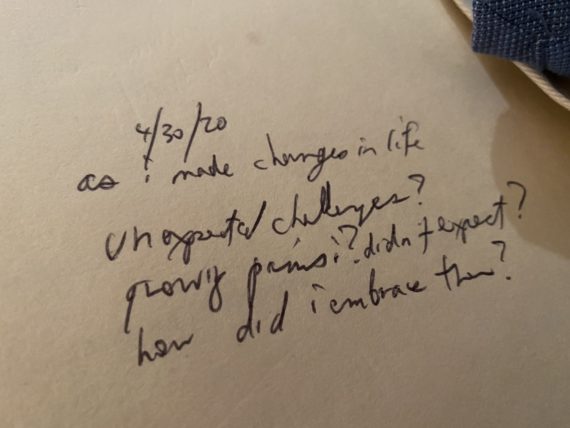 4/30/20
as i made changes in life
unexpected challenges?
growing pains i? didn't expect?
how did i embrace them?